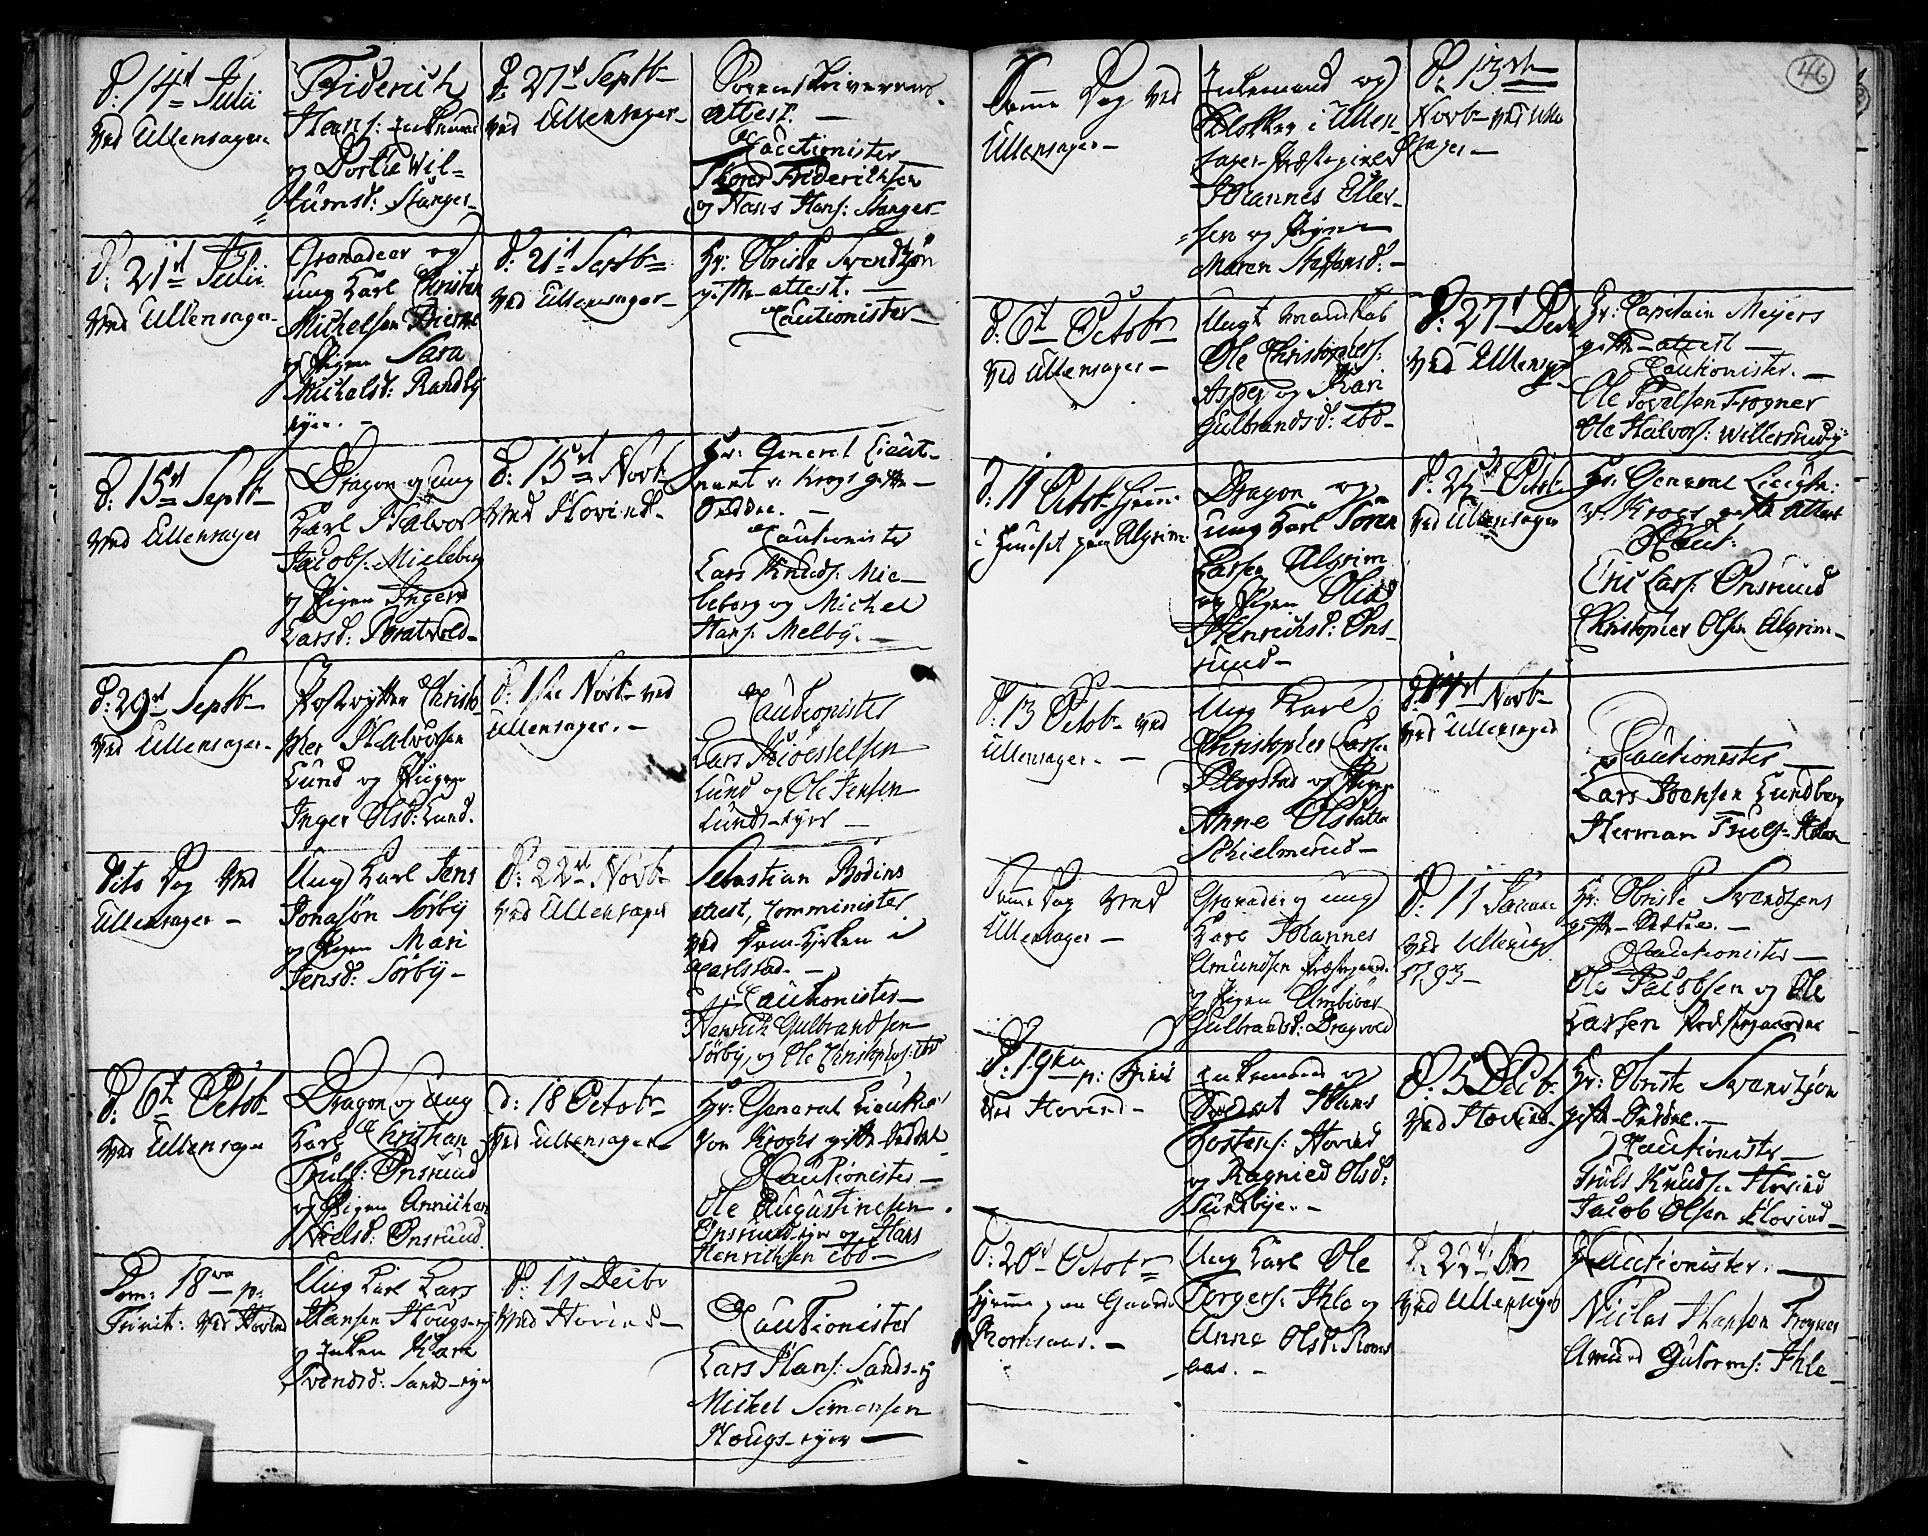 D: 14d Julii
ved Ullensager
Friderich
Hans: Enkemand
og Dortie Wil-
lumsd: Stanger-
D: 27d Septb-
ved Ullensager-
Sorenskriverens
attest. -
Cautionister
Friderichsen
og Hans Hans: Stanger-
D: 21d Julii
ved Ullensager-
Granadeer og
ung Karl Christen
Michelsen
og Pigen Sara
Michelsd: Randby
eyer. -
D: 21d Septb-
ved Ullensager-
Hr: Obriste Svendsøn
gifte-attest. -
Cautionister-
D: 15d Septb-
ved Ullensager
Dragon og ung
Karl Halvor
Jacobs: Mieleborg
og Pigen Inger
Larsd: Bratvold-
D: 15d Novb-
ved Hovind-
Hr: General Lieut-
nant v: Krogs gifte-
Seddel. -
Cautionister
Lars Knuds: Mie-
leborg og Michel
Hans: Melby. -
D: 29d Septb-
ved Ullensager-
Postrytter Christo-
pher Halvorsen
Lund og Pigen
Inger Olsd: Lund.
D: 1ste Novb- ved
Ullensager. -
Cautionister
Lars Kioestelsen
Lund og Ole Jensen
Lunds-eyer -
Dito Dag ved
Ullensager -
Ung Karl Jens
Jonasøn Sørby
og Pigen Mari
Jensd: Sørby-
D: 22d Novb-
ved Ullensager
Sebastian Bodins
attest, Comminister
ved Dom-Kirken i
Carlstad. -
Cautionister-
Henrich Gulbrandsen
Sørby, og Ole Christophs: ibd
D: 6t Octob-
ved Ullensager
Dragon og ung
Karl Christian
Truls: Onsrud
og Pigen Annichen
Nielsd: Onsrud.
D: 18 Octobr
ved Ullensager-
Hr: General Lieutnat
von Kroghs gifte-Seddel
Cautionister-
Ole Augustinesen
Onsrud-eyer og Hans
Henrichsen ibd-
Dom: 18va p:
Trinit: ved Hovind
Ung Karl Lars
Hansen Hougs-ey
og Enken Kari
Svendsd: Sands-eyer
D: 11 Decbr
ved Hovind-
Cautionister
Lars Hans: Sands-ey
Michel Simensen
Hougs-eyer -
46
Samme Dag ved
Ullensager-
Enkemand og
Klokker i Ullen-
sager-Præstegield
Johannes Eller-
sen og Pigen
Maren Steffensd: -
D: 13de
Novb- ved Ullen
sager-
D: 6t Octobr
ved Ullensager-
Ungt Mandskab
Ole Christophers:
Asper og Kari
Gulbrandsd: ibd-
D: 27d Decb
ved Ullensager
Hr: Capitain Meyers
gifte-attest -
Cautionister. -
Ole Povelsen Frogner
Ole Halvors: Willersrudey
D: 11 Octob- hiemme
i Huuset paa Algrim
Dragon og
ung Karl Søren
Larsen Algrim
og Pigen Oliæ
Henrichsd: Ons-
rund-
Octob
ved Ullensager
Hr: General Lieutn:
v: Krogs gifte Attest
Caut:
Eric Lars: Onsrund
Christopher Olsen Algrim-
D: 13 Octob- ved
Ullensager. -
Ung Karl
Christopher Larsen
Blogstad og Pigen
Anne Olsdatter
Schielmerud-
D: 14d Novb-
ved Ullensager
Cautionister-
Lars Joensen Lundberg
Herman Truls:
Samme Dag ved
Ullensager -
Granadeer og ung
Karl Johannes
Amundsen Præstegaard
og Pigen Ambiør
Gulbrandsd: Dragvold
D: 11 Januar
ved Ullensager
1793-
Hr: Obriste Svendsens
gifte-Seddel. -
Cautionister-
Ole Jacobsen og Ole
Larsen Præstegaarden
D: 19na p: Trinit
ved Hovind-
Enkemand og
Soldat Hans
Tostens: Hovind
og Ragnild Olsd:
Sundbye. -
D: 5 Decb-
ved Hovind-
Hr: Obriste Svendsøn
gifte-Seddel. -
Cautionister-
Truls Knudsen Hovind
Jacob Olsen Hovind-
D: 20d Octobr
hiemme paa Gaarden
Romsaas. -
Ung Karl Ole
Torgers: Ihle og
Anne Olsd: Roms
aas. -
D: 22d
ved Ullensager
Cautionister. -
Niclas Hansen Frogner
Amund Gutorms: Ihle-